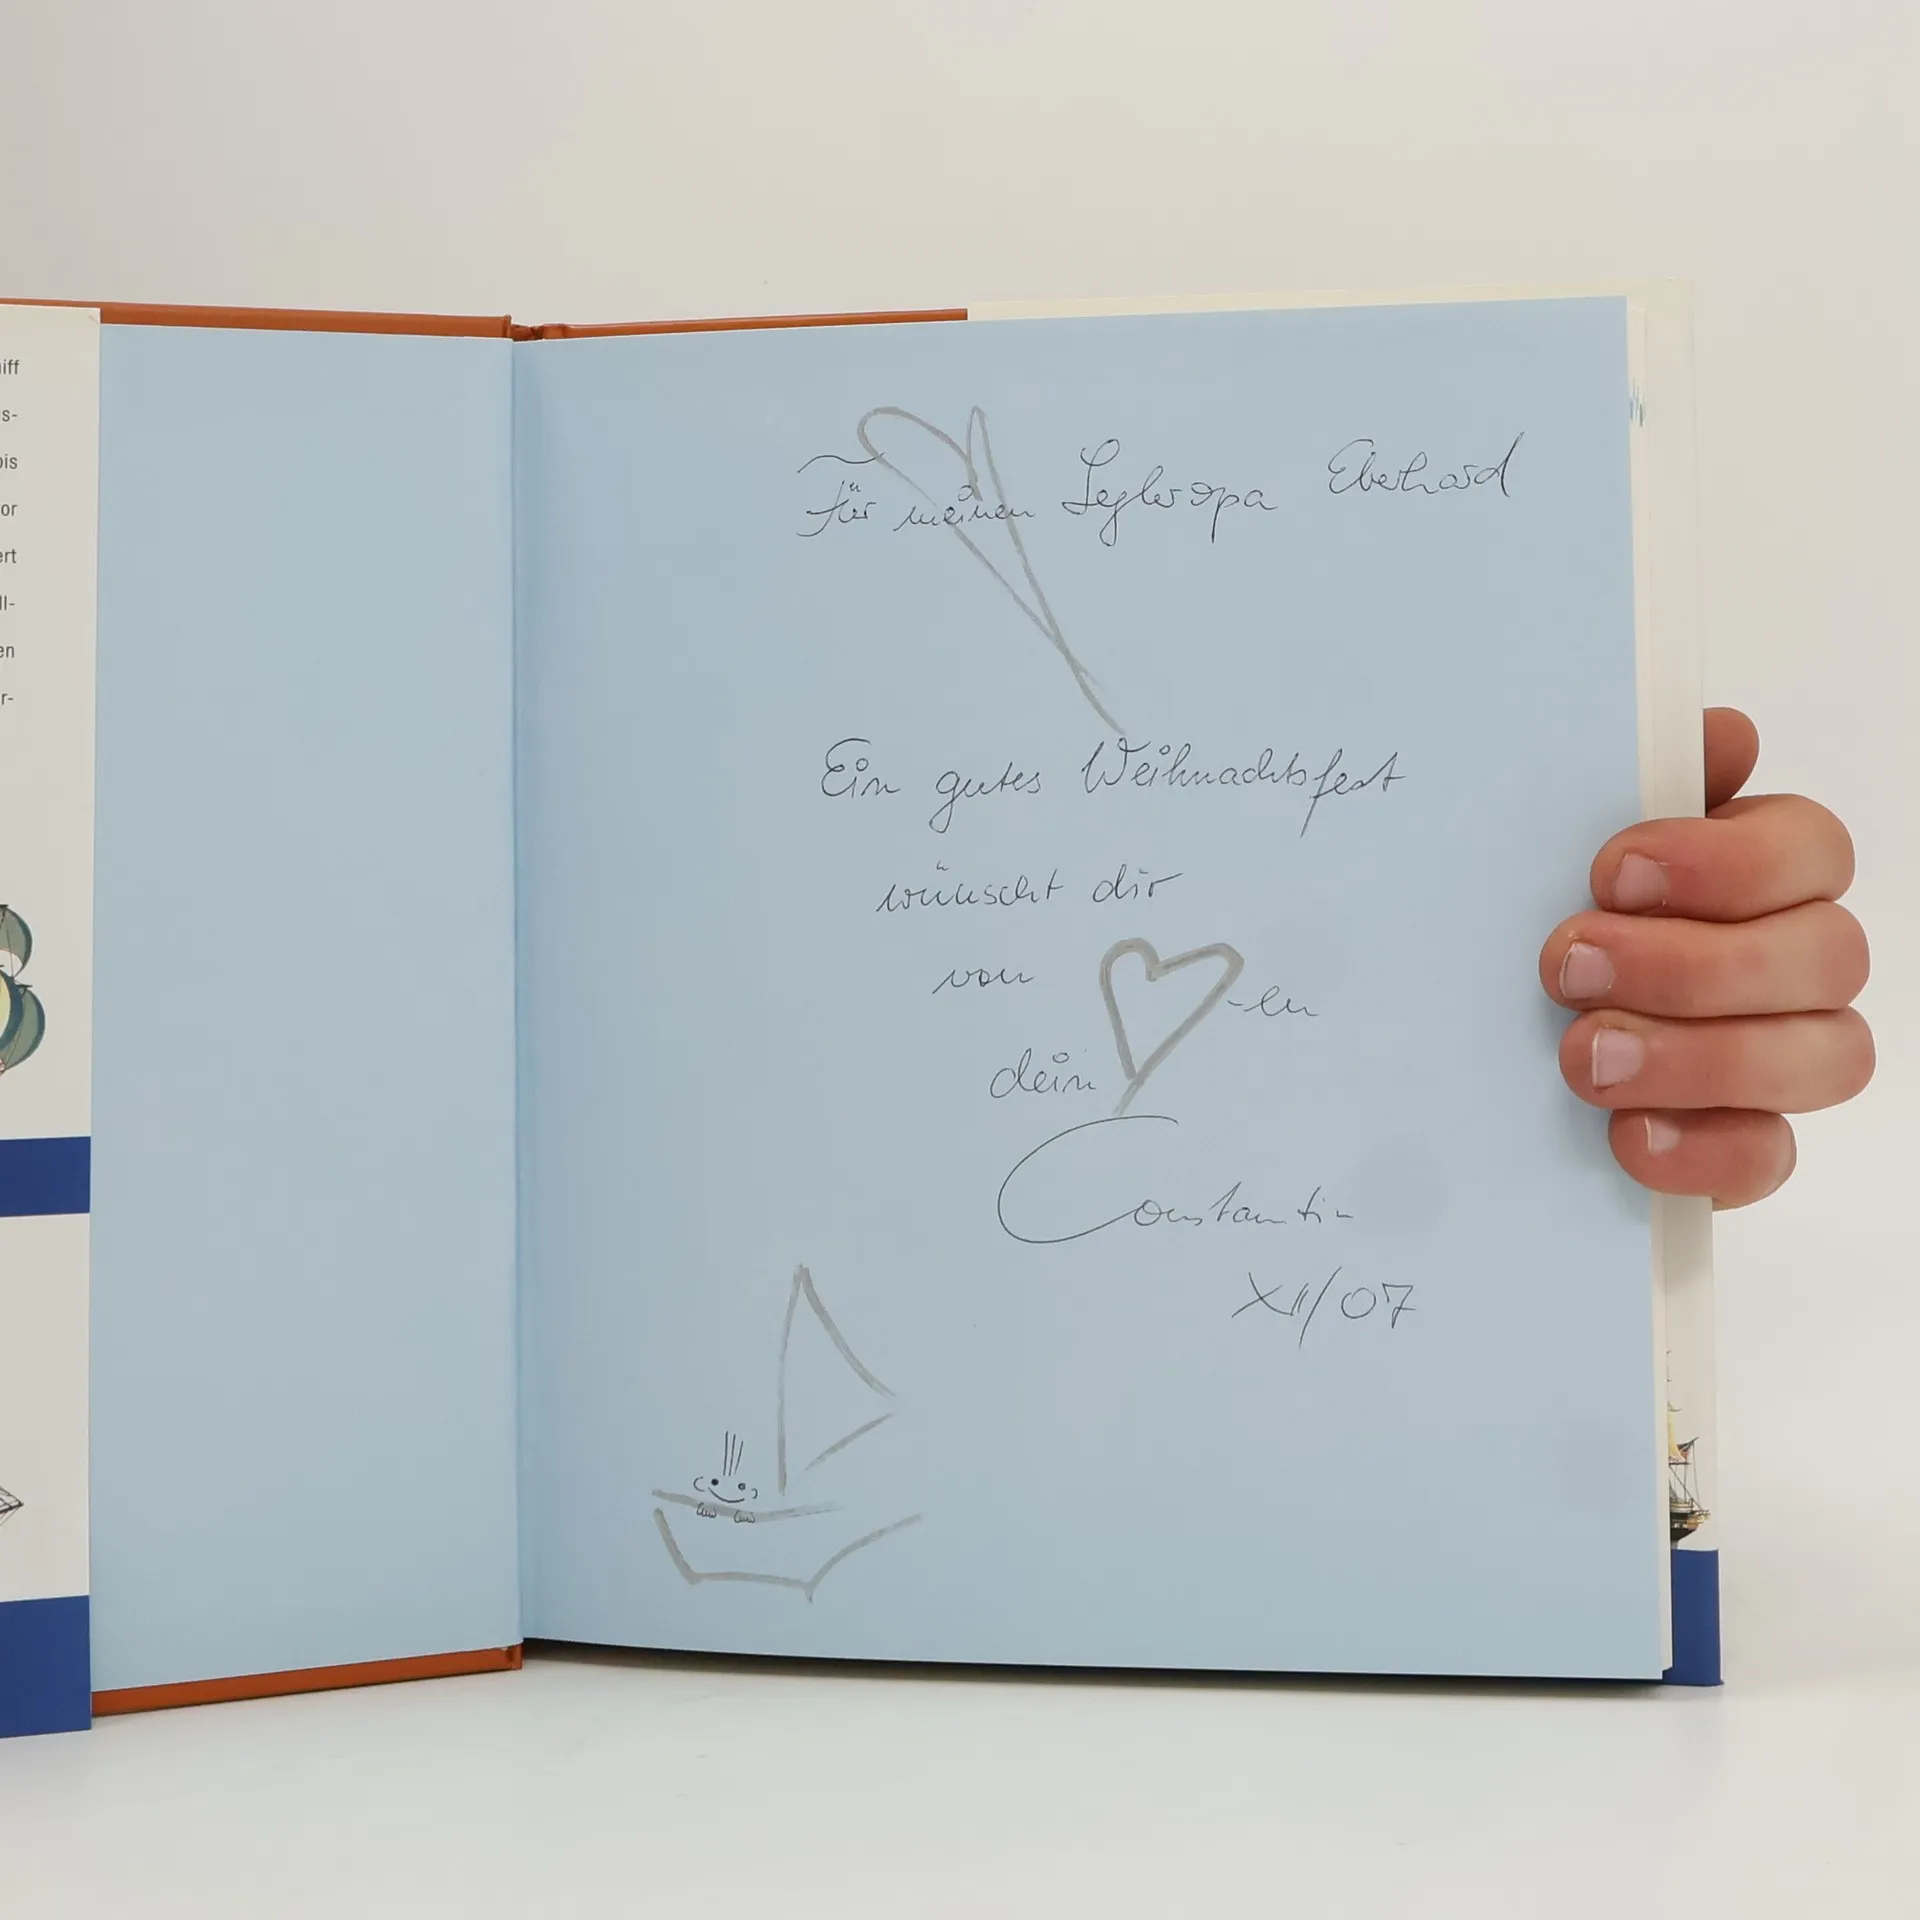 iff
s-
ois
or
ert
ll-
en
r-
Für meinen Segleropa Eberhard
Ein gutes Weihnachtsfest
wünscht dir
von ♡-en
dein
Constantin
XII/07